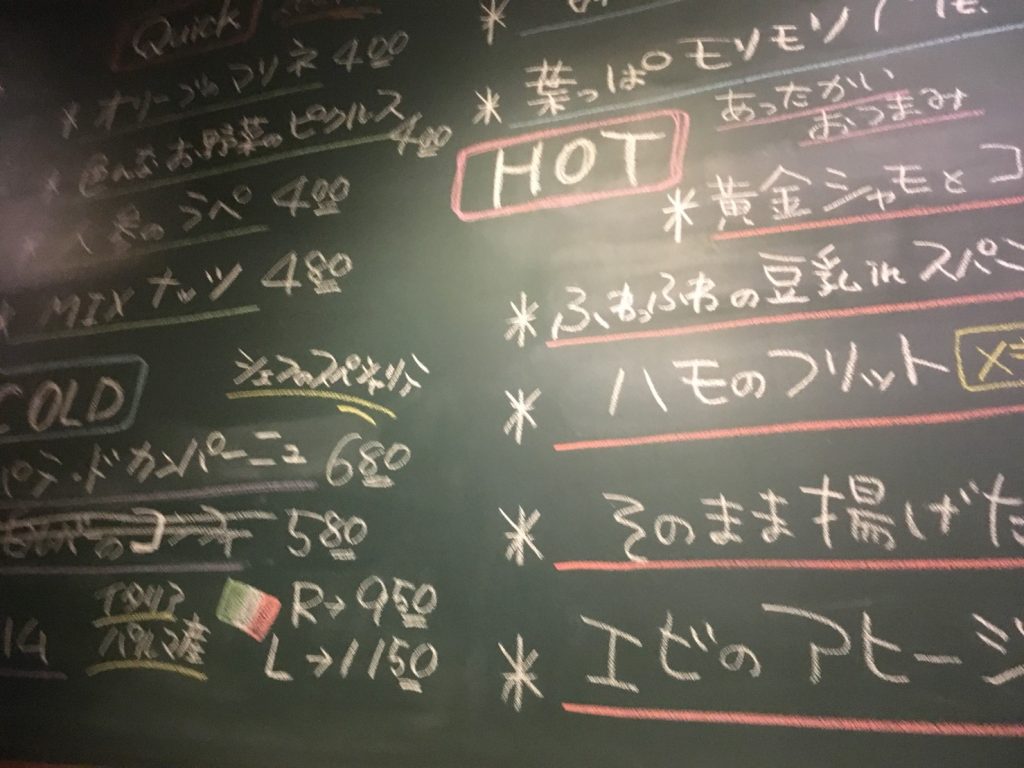 Quick
* オリーブのマリネ 400
お野菜のピクルス 400
ラペ 400
MIX ナッツ 480
COLD
シェフのスペシャリテ
パテ・ド・カンパーニュ 680
580
イタリア
パルマ産
R→950
L→1150
* 葉っぱモリモリ
HOT
あったかい
おつまみ
* 黄金シャモと
* ふわっふわの豆乳 in スパン
* ハモのフリット
* そのまま揚げた
* エビのアヒージ